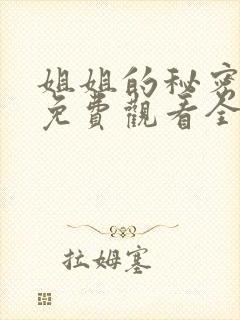 姐姐的秘密
免費觀看全
拉姆塞